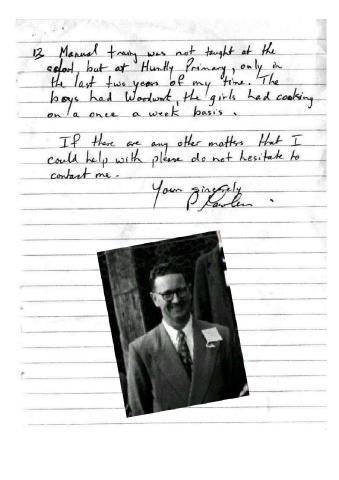 13 Manual traing was not taught at the
school but at Huntly Primary, only in
the last two years of my time. The
boys had Woodwork, the girls had cooking
on a once a week basis.
If there are any other matters that I
could help with please do not hesitate to
contact me.
Yours sincerely
P